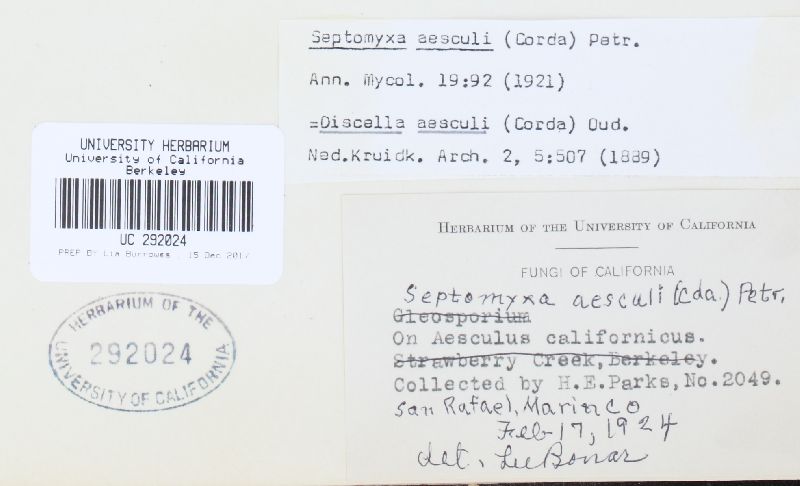 Septomyxa aesculi (Corda) Petr.
Ann. Mycol. 19:92 (1921)
=Discella aesculi (Corda) Oud.
Ned.Kruidk. Arch. 2, 5:507 (1889)
UNIVERSITY HERBARIUM
University of California
Berkeley
UC 292024
PREP BY Lia Burrowes , 15 Dec 2017
HERBARIUM OF THE
292024
UNIVERSITY OF CALIFORNIA
HERBARIUM OF THE UNIVERSITY OF CALIFORNIA
FUNGI OF CALIFORNIA
Septomyxa aesculi (Cda.) Petr.
Gleosporium
On Aesculus californicus.
Strawberry Creek, Berkeley.
Collected by H.E.Parks, No.2049.
San Rafael, Marin Co
Feb 17, 1924
det. Lee Bonar